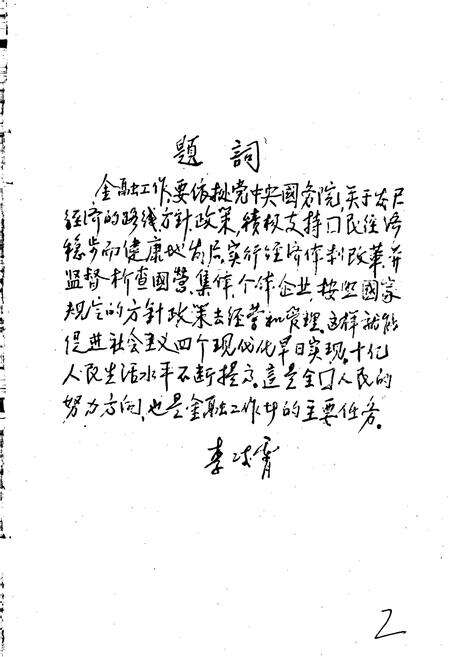 题 詞
金融工作,要依据党中央國务院,关于发展
经济的路线方针,政策,積极支持国民经济
稳步而健康地发展,实行经济体制改革,并
监督检查國营、集体、个体企业,按照國家
规定的方针政策去经营和管理,这样就能
促进社会主义四个现代化早日实现,十亿
人民生活水平不断提高。這是全国人民的
努力方向,也是金融工作者的主要任务。
李
2